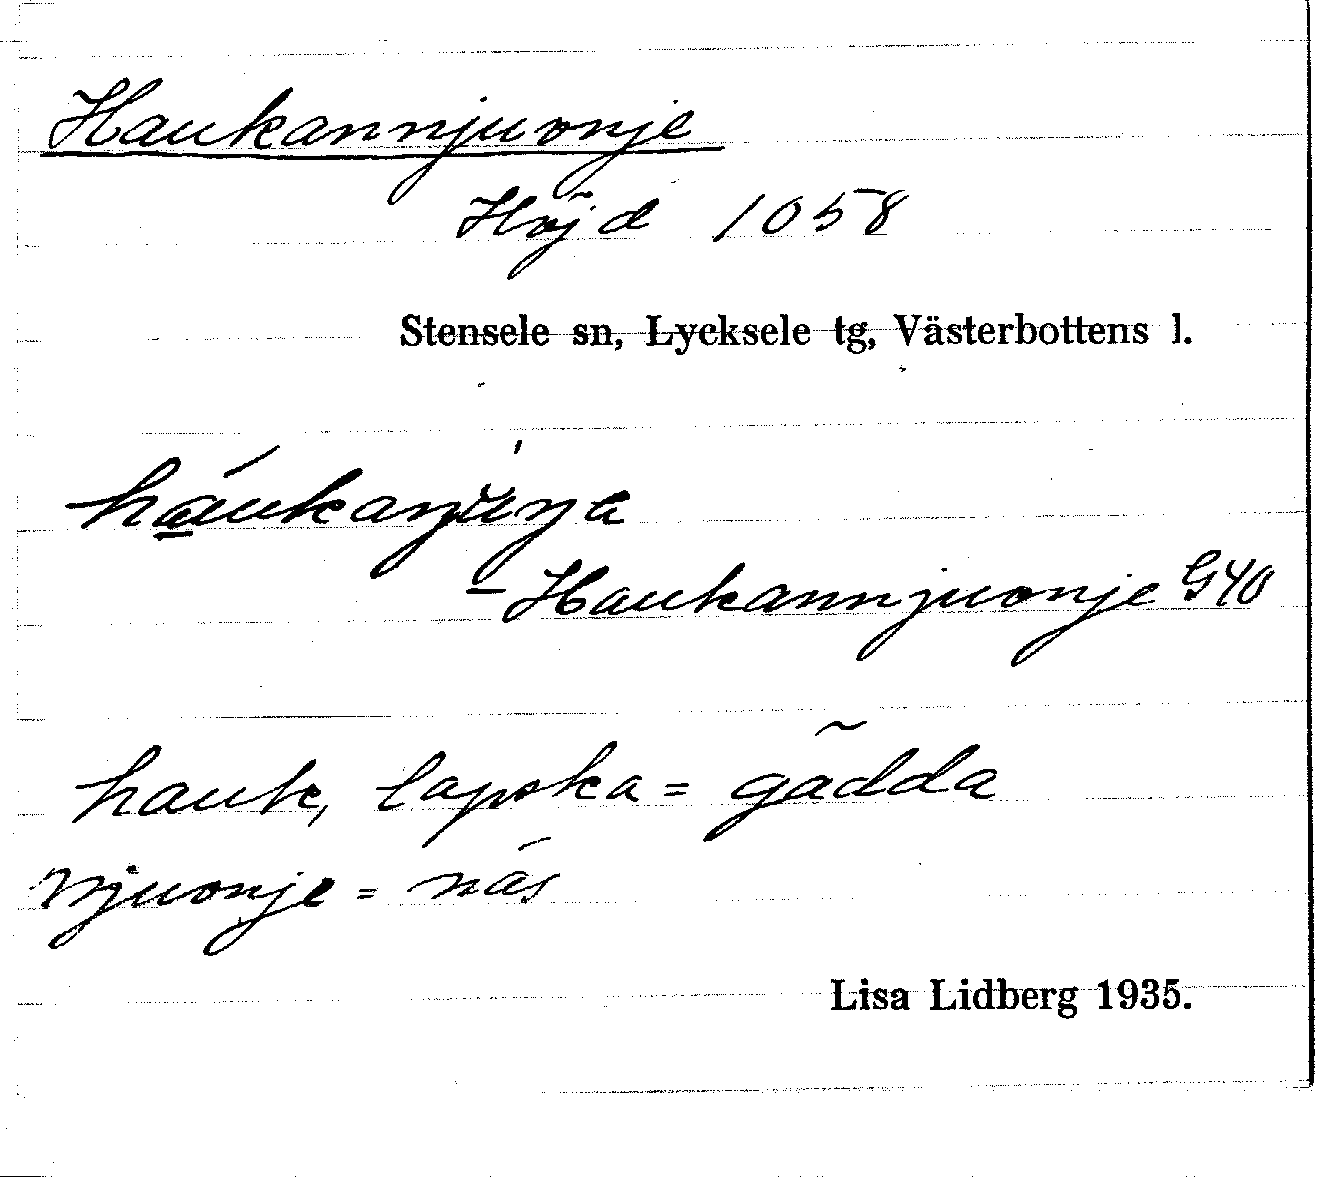 Haukannjuonje
Höjd 1058
Stensele sn, Lycksele tg, Västerbottens l.
– Haukannjuonje G40
hauk, lapska = gädda
njuonje = näs
Lisa Lidberg 1935.